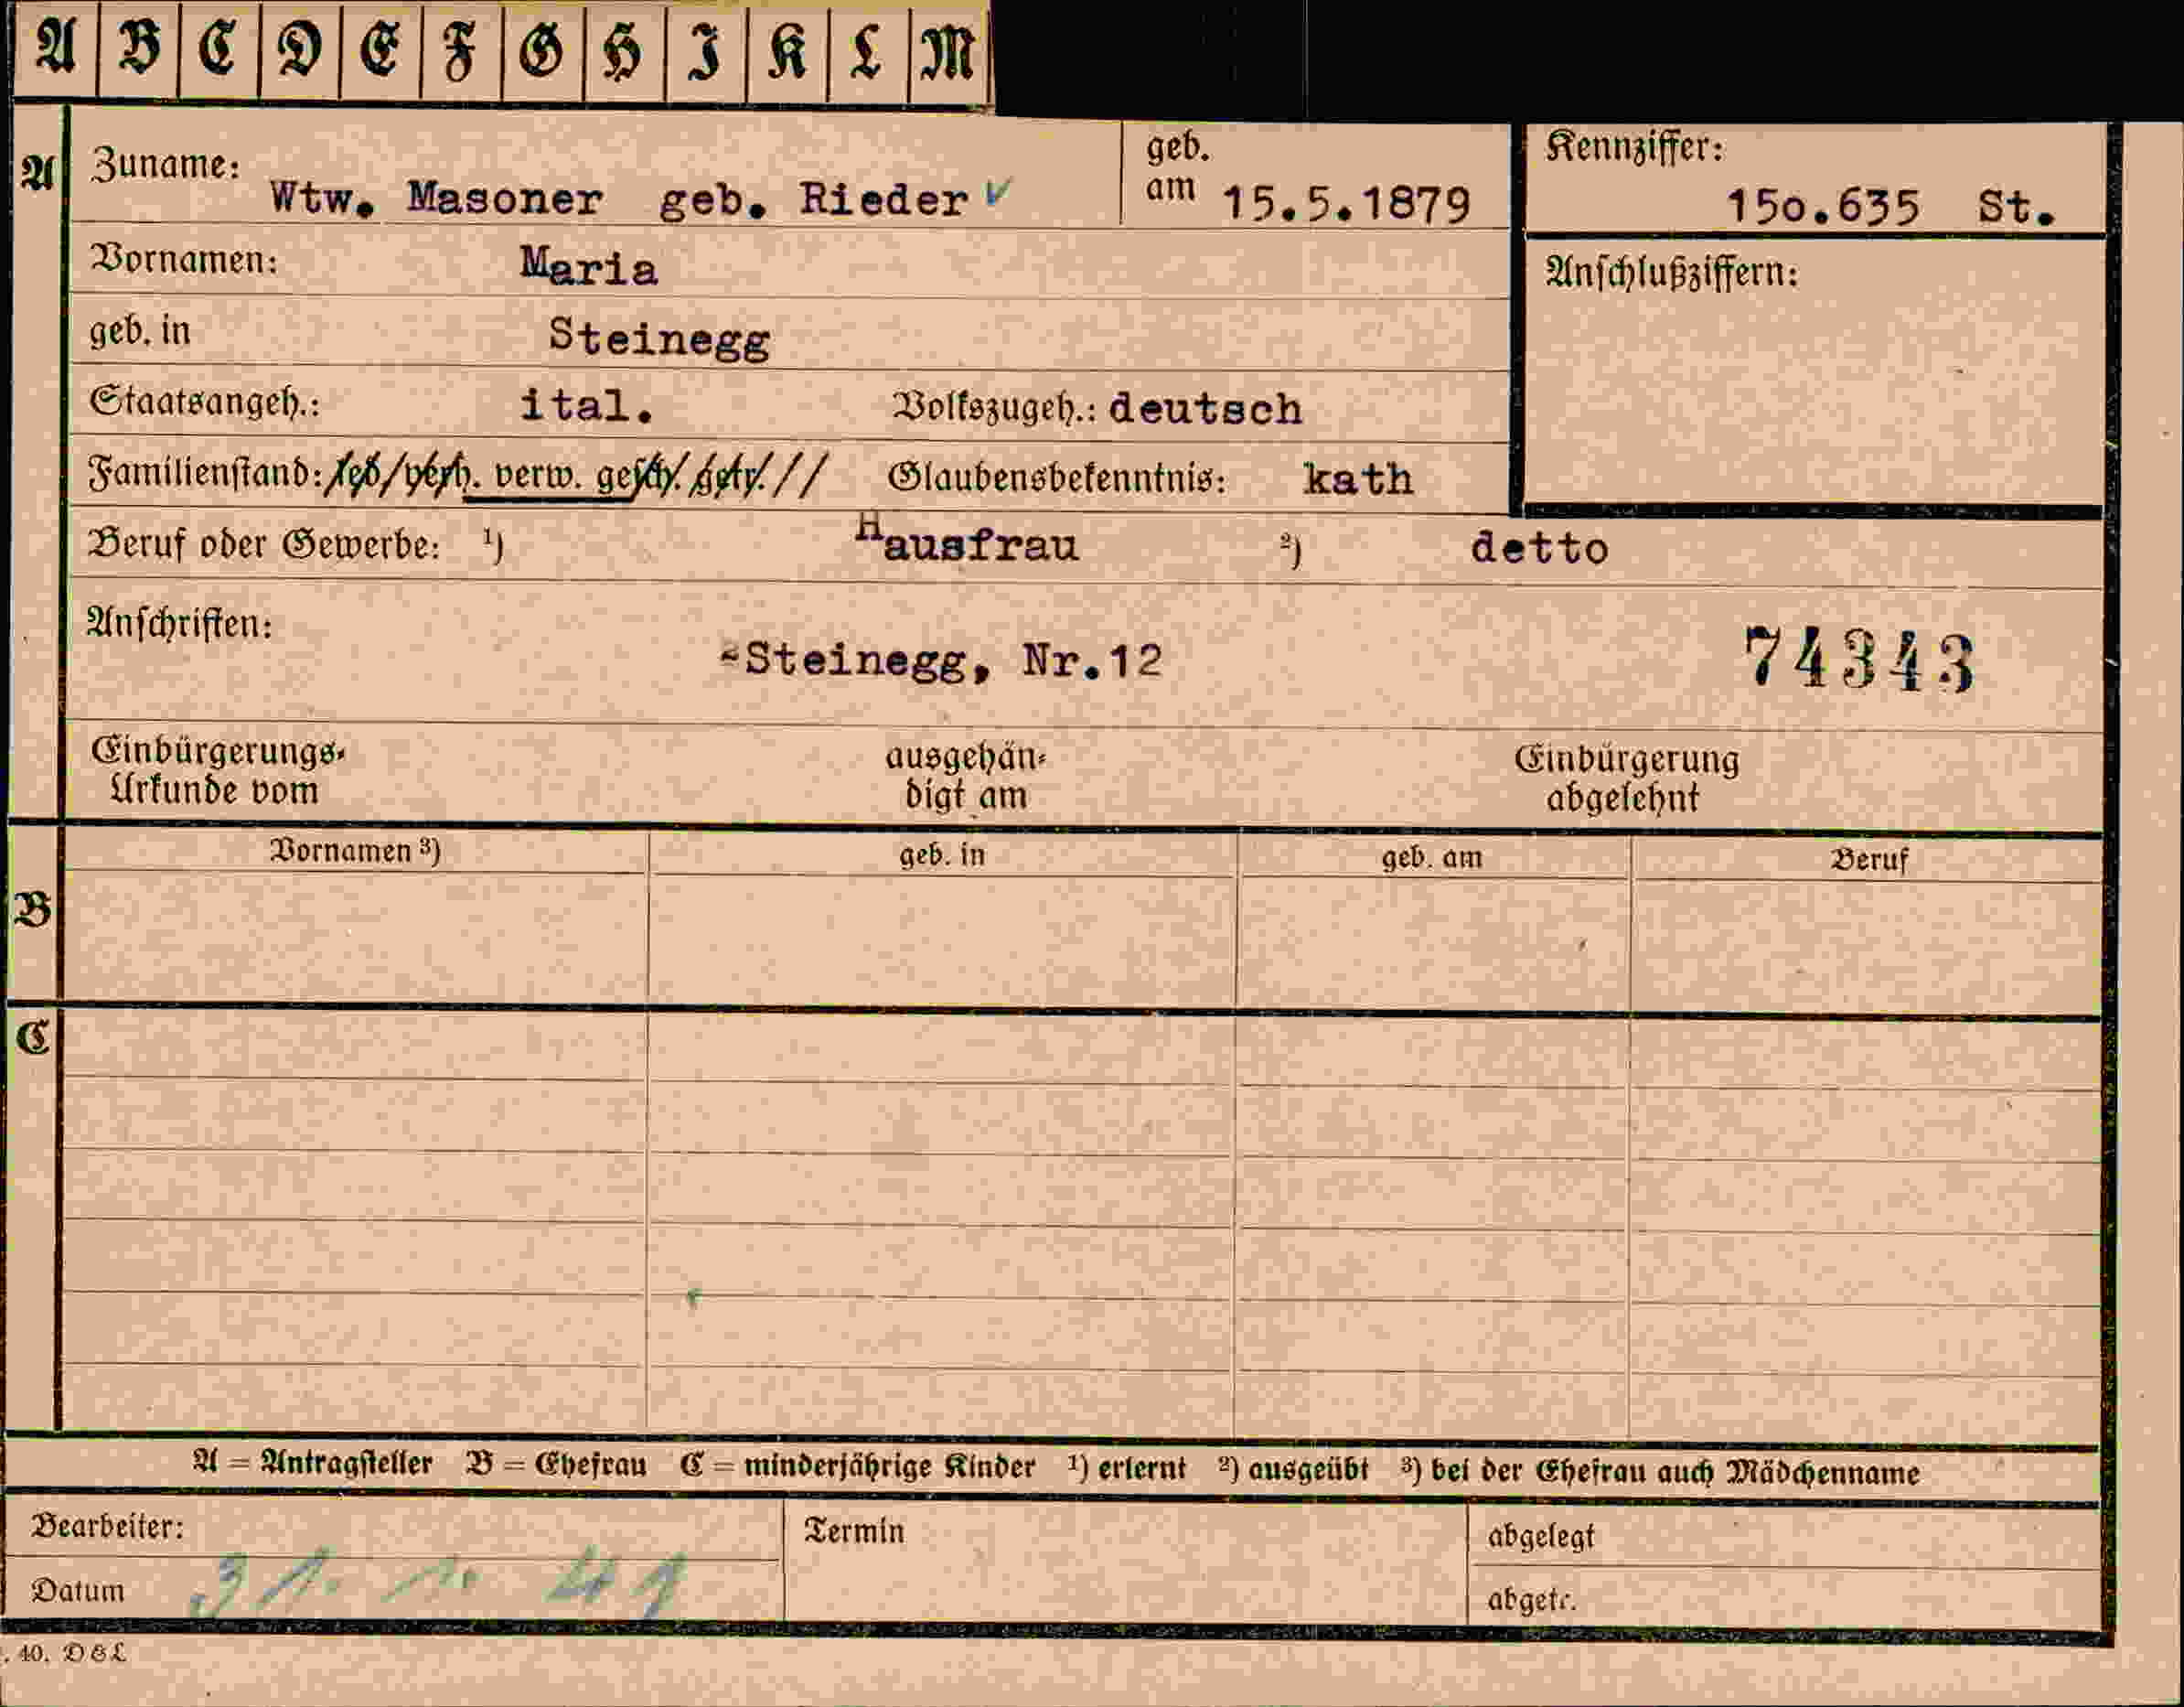 A B C D E F G H I K L M
A Zuname: Wtw. Masoner geb. Rieder geb. am 15.5.1879
Kennziffer: 15o.635 St.
Vornamen: Maria
Anschlußziffern:
geb. in Steinegg
Staatsangeh.: ital. Volkszugeh.: deutsch
Familienstand: led/verh. verw. gesch. getr. // Glaubensbekenntnis: kath
Beruf oder Gewerbe: ¹) Hausfrau ²) detto
Anschriften: Steinegg, Nr.12 74343
Einbürgerungs- ausgehän- Einbürgerung
Urkunde vom digt am abgelehnt
Vornamen ³) geb. in geb. am Beruf
B
C
A = Antragsteller B = Ehefrau C = minderjährige Kinder ¹) erlernt ²) ausgeübt ³) bei der Ehefrau auch Mädchenname
Bearbeiter: Termin abgelegt
Datum 31. 1. 41 abgetr.
. 40. D&L